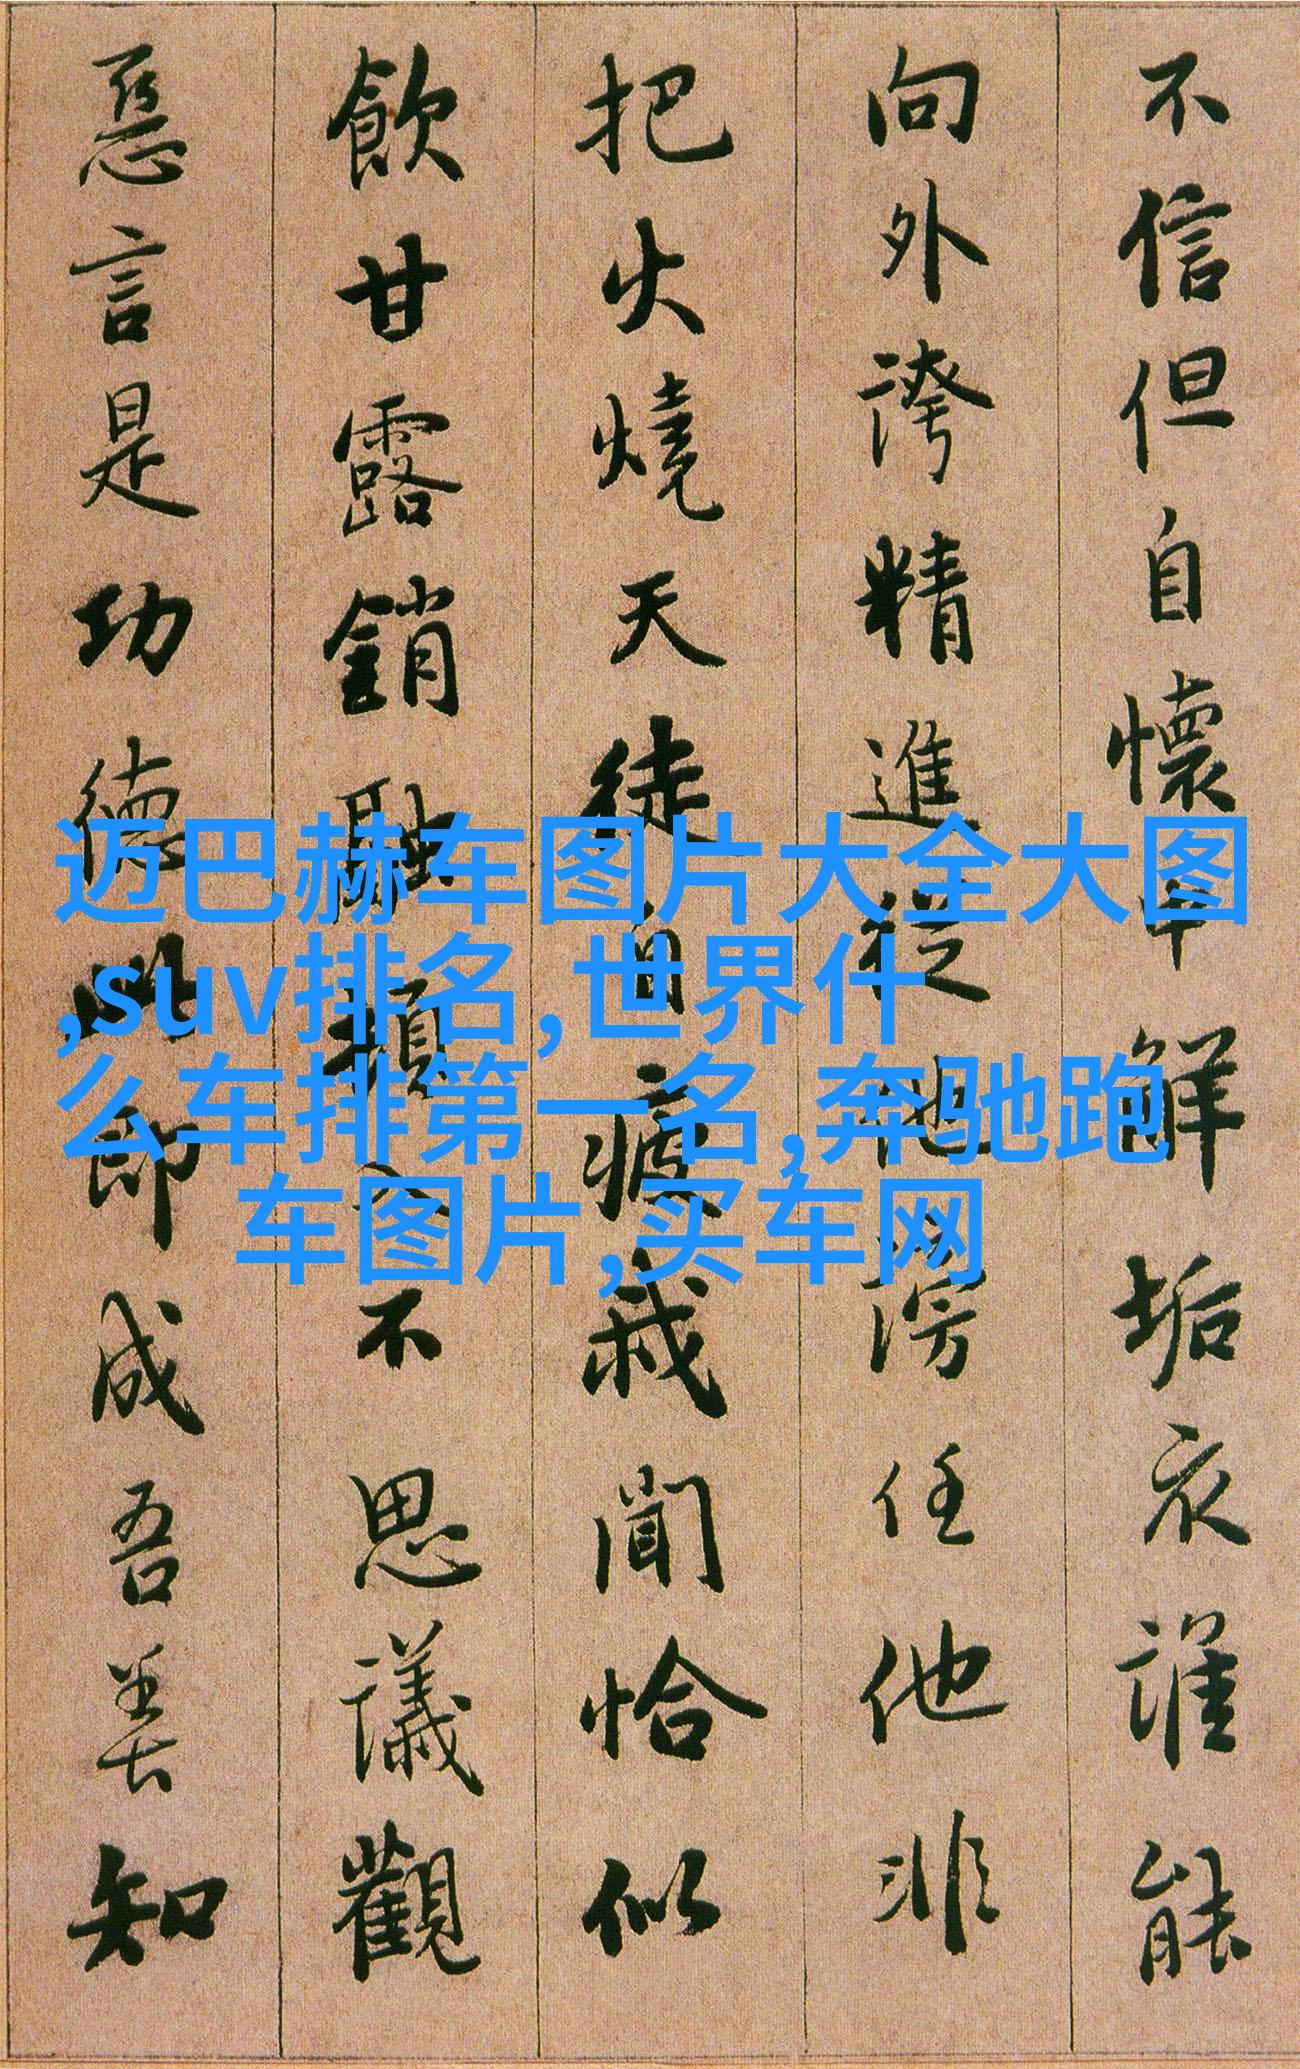 不信但自懷中解垢衣誰能
向外誇精進從他謗任他非
把火燒天徒自疲我聞恰似
飲甘露銷融頓入不思議觀
惡言是功德此即成吾善知
迈巴赫车图片大全大图
,suv排名,世界什
么车排第一名,奔驰跑
车图片,买车网